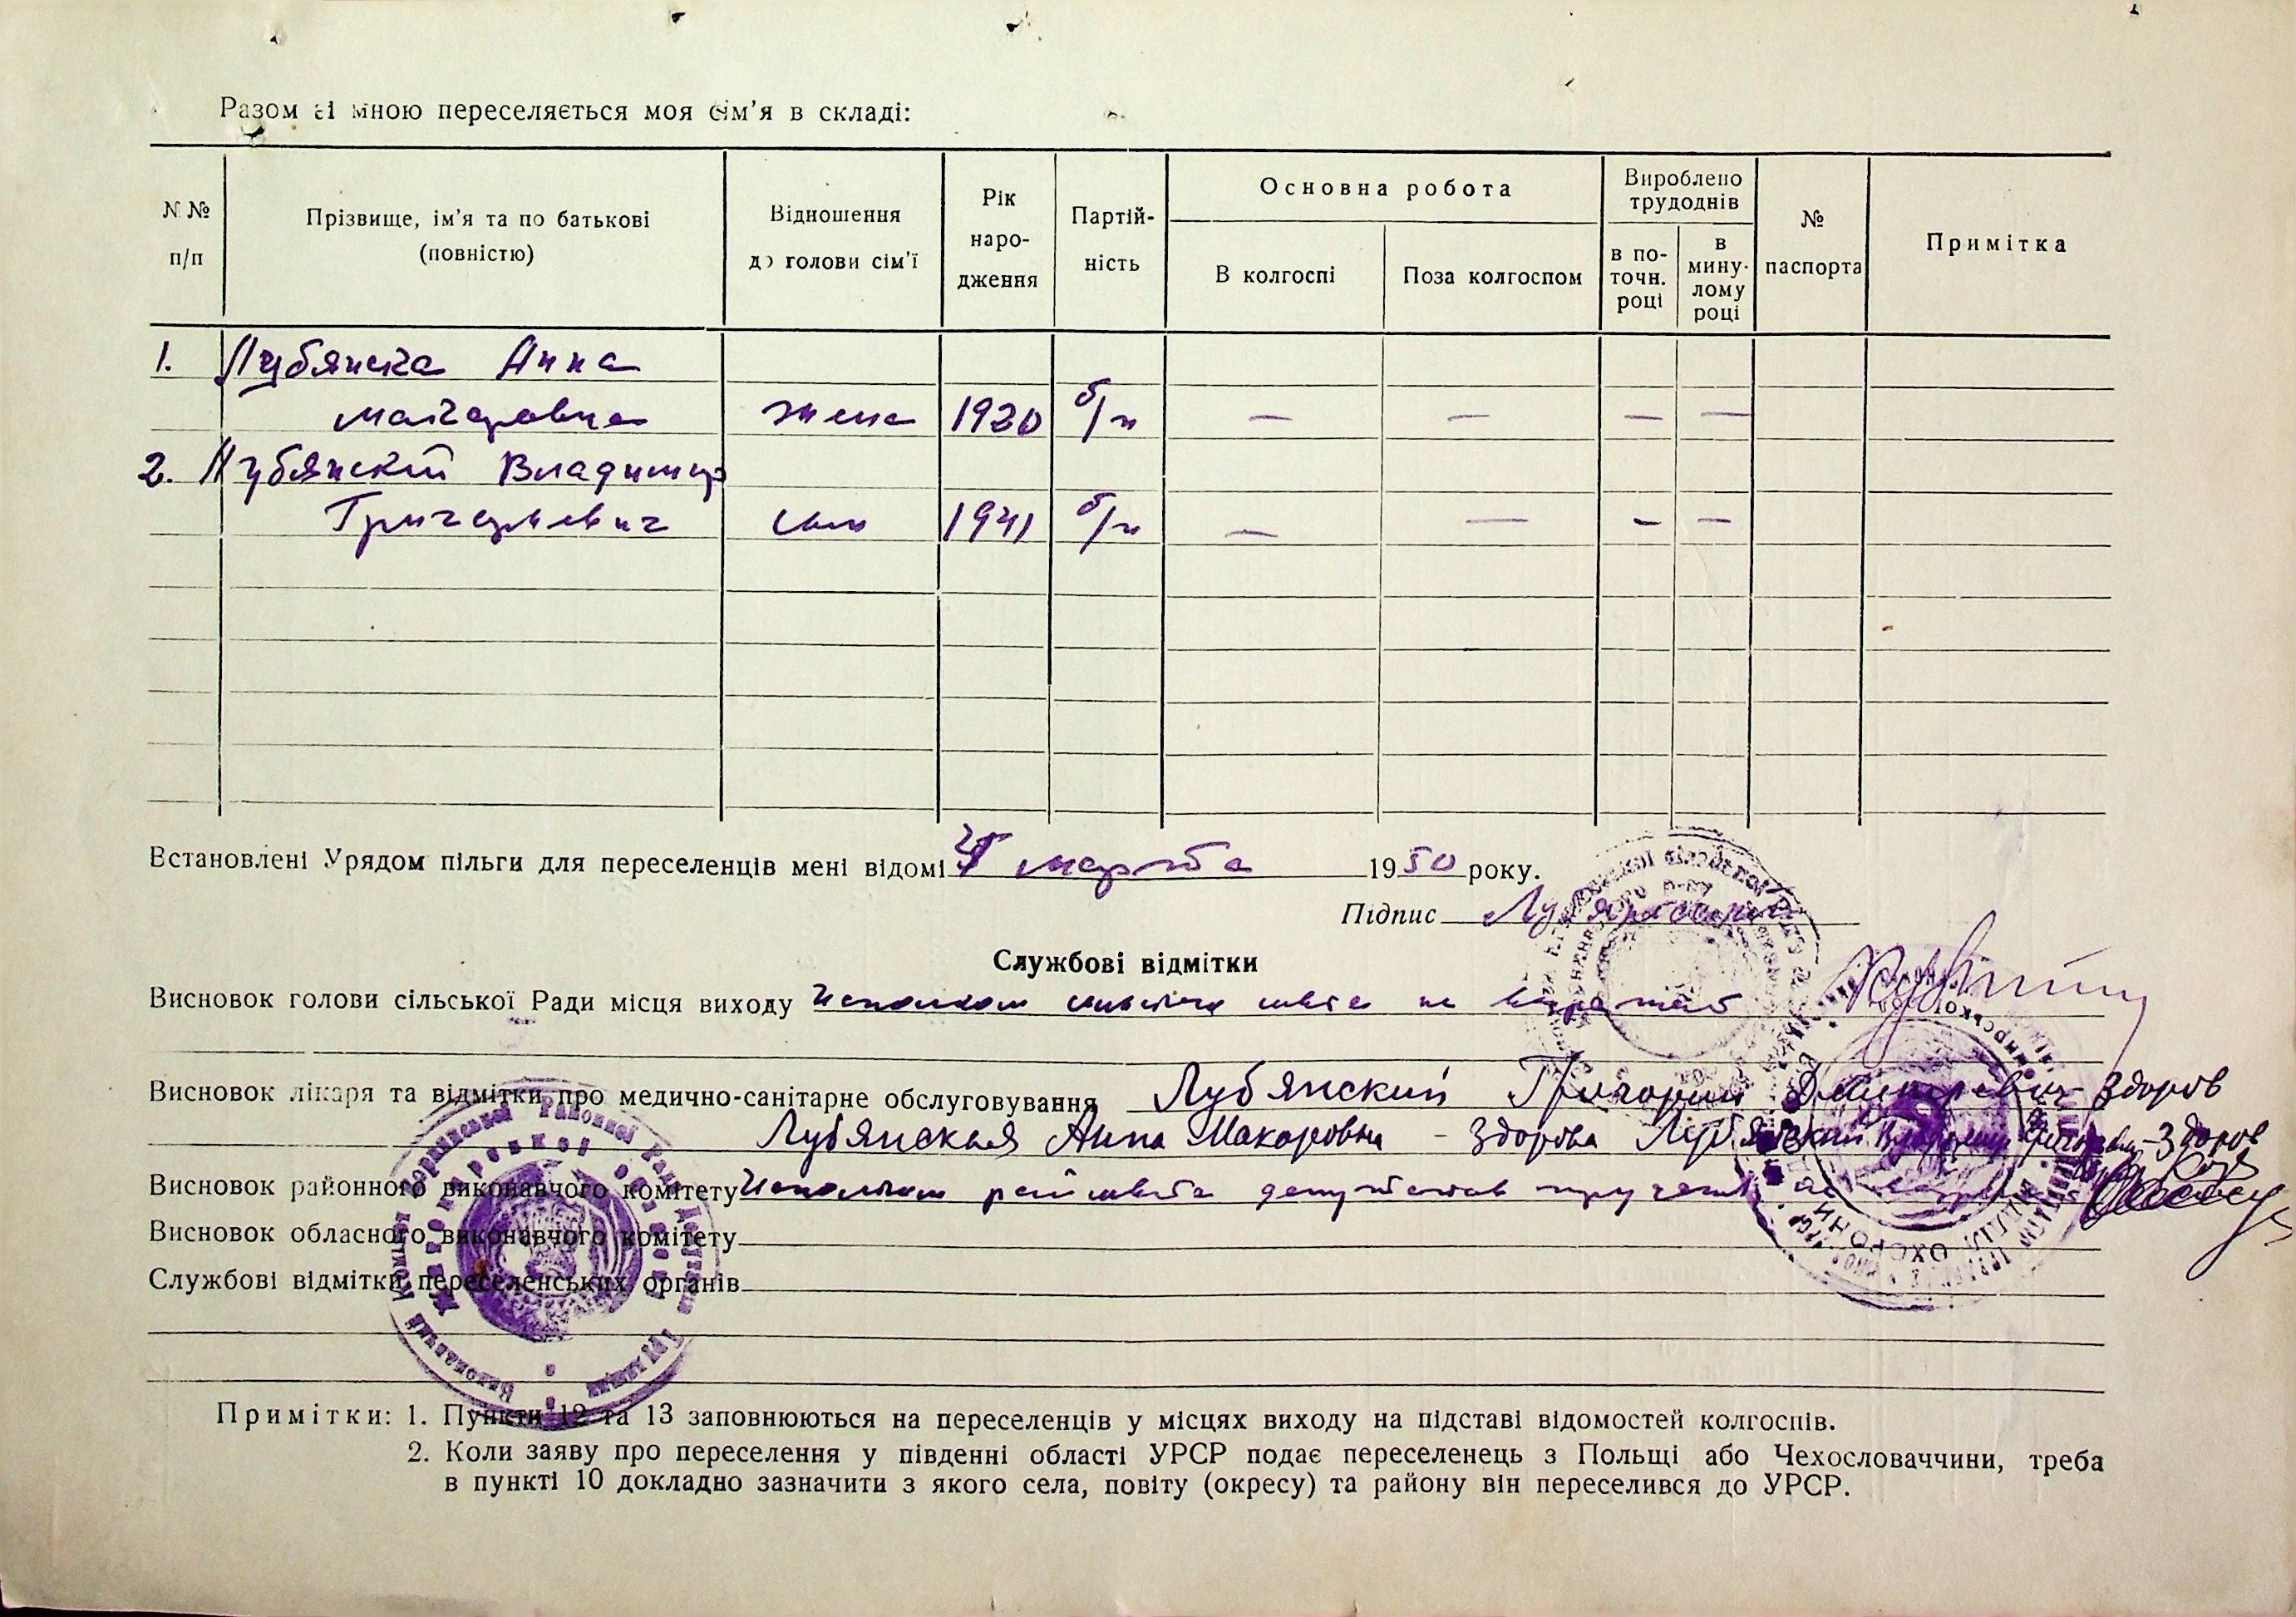 Разом зі мною переселяється моя сім'я в складі:
N№ п/п
Прізвище, ім'я та по батькові (повністю)
Відношення до голови сім'ї
Рік народження
Партійність
Основна робота
В колгоспі
Поза колгоспом
Вироблено трудоднів
в поточн. році
в минулому році
№ паспорта
Примітка
1. Лубянска Анна
Макаровна жена 1920 б/п — — — —
2. Лубянский Владимир
Григорьевич сын 1941 б/п — — — —
Встановлені Урядом пільги для переселенців мені відомі марта 1950 року.
Підпис
Службові відмітки
Висновок голови сільської Ради місця виходу Исполком не возражает
Висновок лікаря та відмітки про медично-санітарне обслуговування Лубянский Григорий Дмитревич здоров
Лубянская Анна Макаровна - здорова Лубянский Владимир - здоров
Висновок районного виконавчого комітету Исполком депутатов
Висновок обласного виконавчого комітету
Службові відмітки переселенських органів
Примітки: 1. Пункти 12 та 13 заповнюються на переселенців у місцях виходу на підставі відомостей колгоспів.
2. Коли заяву про переселення у південні області УРСР подає переселенець з Польщі або Чехословаччини, треба
в пункті 10 докладно зазначити з якого села, повіту (окресу) та району він переселився до УРСР.